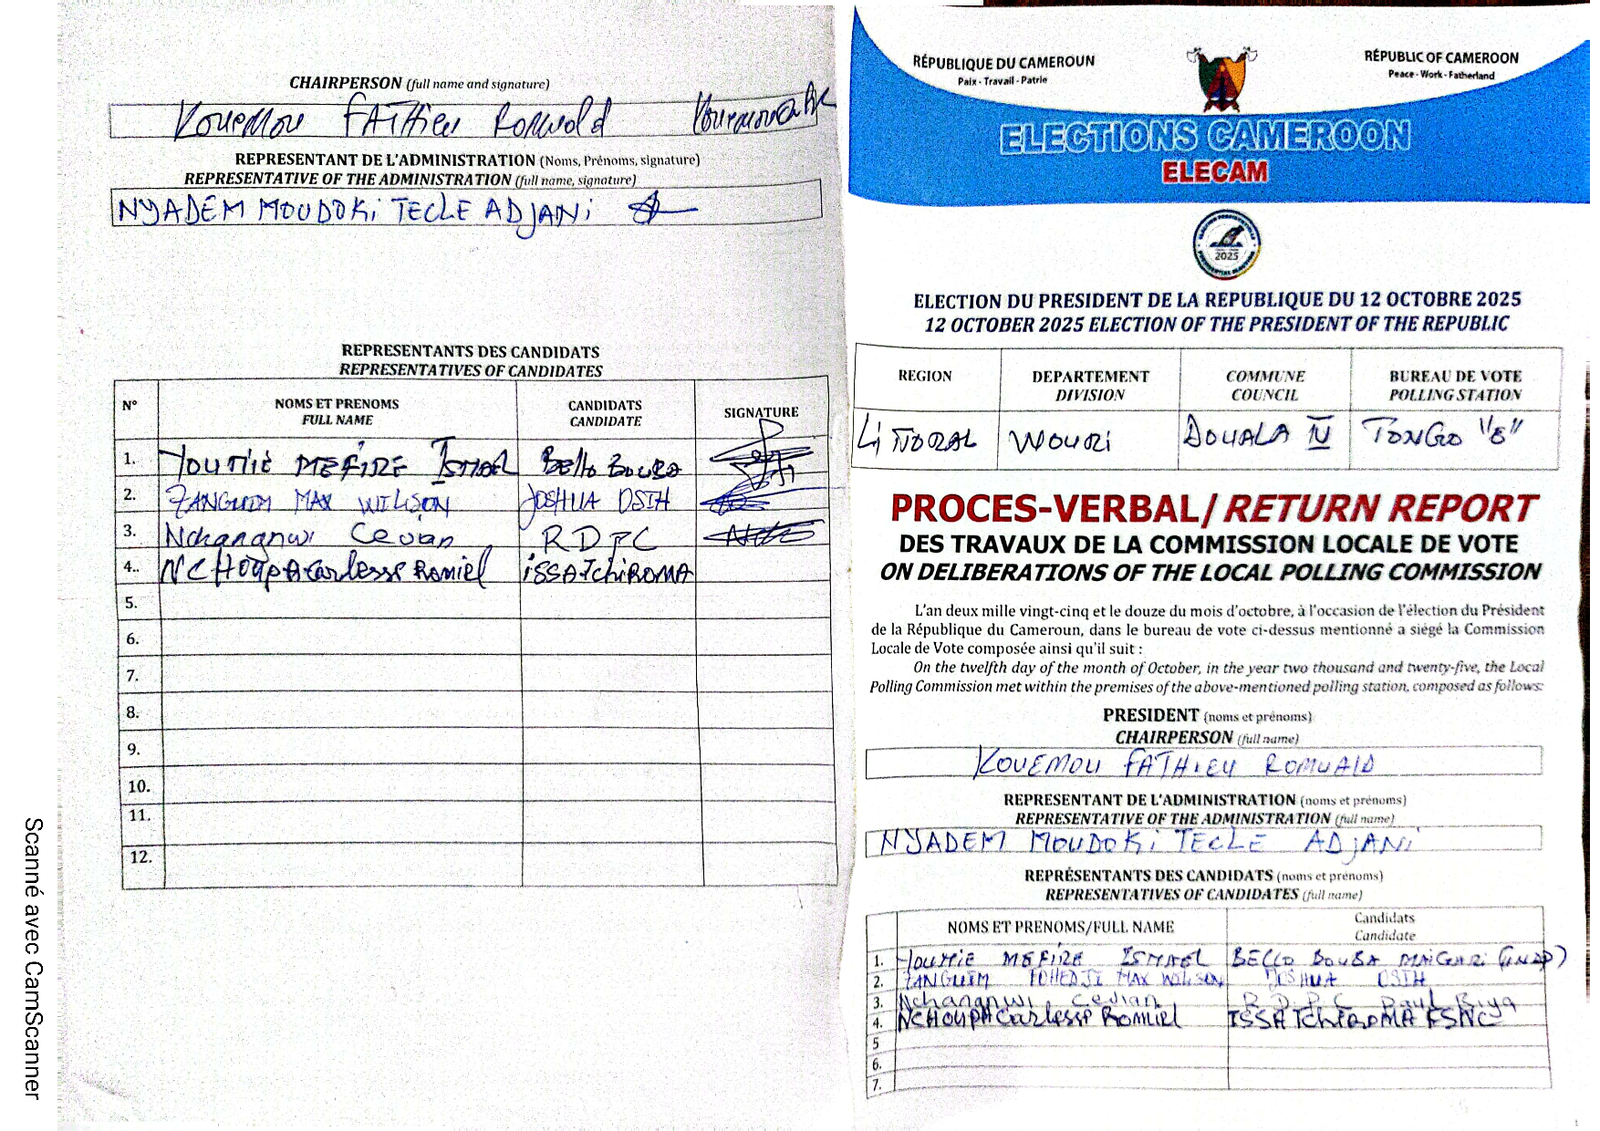 CHAIRPERSON (full name and signature)
Kouemou FATHieu Romuald
REPRESENTANT DE L'ADMINISTRATION (Noms, Prénoms, signature)
REPRESENTATIVE OF THE ADMINISTRATION (full name, signature)
NYADEM MOUDOKi TECLE ADJANi
REPRESENTANTS DES CANDIDATS
REPRESENTATIVES OF CANDIDATES
N° NOMS ET PRENOMS CANDIDATS SIGNATURE
FULL NAME CANDIDATE
1. YOUMIE MEFIRE ISMAEL Bello BOUBA
2. ZANGUIM MAX WILSON JOSHUA OSIH
3. Nchangnwi Cevian R D P C
4.. NCHOUPA Carlesse Romiel iSSA TchiROMA
5.
6.
7.
8.
9.
10.
11.
12.
RÉPUBLIQUE DU CAMEROUN
Paix - Travail - Patrie
RÉPUBLIC OF CAMEROON
Peace - Work - Fatherland
ELECTIONS CAMEROON
ELECAM
2025
ELECTION DU PRESIDENT DE LA REPUBLIQUE DU 12 OCTOBRE 2025
12 OCTOBER 2025 ELECTION OF THE PRESIDENT OF THE REPUBLIC
REGION DEPARTEMENT COMMUNE BUREAU DE VOTE
DIVISION COUNCIL POLLING STATION
LiTTORAL WOURI DOUALA IV TONGO "8"
PROCES-VERBAL/RETURN REPORT
DES TRAVAUX DE LA COMMISSION LOCALE DE VOTE
ON DELIBERATIONS OF THE LOCAL POLLING COMMISSION
L'an deux mille vingt-cinq et le douze du mois d'octobre, à l'occasion de l'élection du Président
de la République du Cameroun, dans le bureau de vote ci-dessus mentionné a siégé la Commission
Locale de Vote composée ainsi qu'il suit :
On the twelfth day of the month of October, in the year two thousand and twenty-five, the Local
Polling Commission met within the premises of the above-mentioned polling station, composed as follows:
PRESIDENT (noms et prénoms)
CHAIRPERSON (full name)
KOUEMOU FATHIEU ROMUALD
REPRESENTANT DE L'ADMINISTRATION (noms et prénoms)
REPRESENTATIVE OF THE ADMINISTRATION (full name)
NYADEM MOUDOKi TECLE ADJANi
REPRÉSENTANTS DES CANDIDATS (noms et prénoms)
REPRESENTATIVES OF CANDIDATES (full name)
NOMS ET PRENOMS/FULL NAME Candidats
Candidate
1. YOUMIE MEFIRE ISMAEL BELLO BOUBA MAIGARI (UNDP)
2. ZANGUIM MAX WILSON JOSHUA OSIH
3. Nchangnwi Cevian R.D.P.C Paul Biya
4. NCHOUPA Carlesse Romiel ISSA TchiROMA FSNC
5
6.
7.
Scanné avec CamScanner